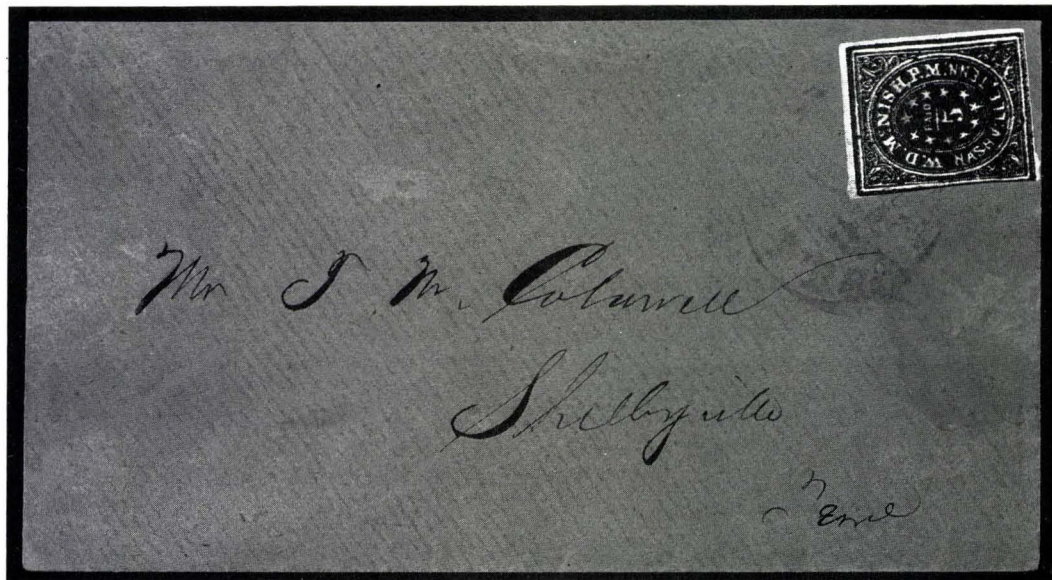 W. D. McNISH, P. M. NASHVILLE TENN
PAID
5
Mr J M.
Shelbyville
Tenn